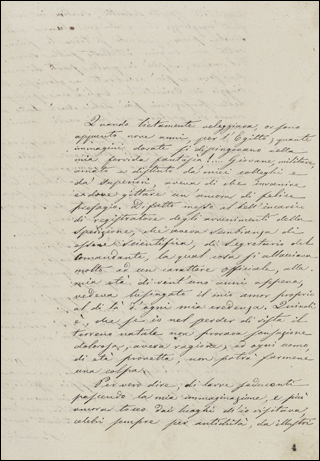 Quando lietamente veleggiava, or sono
appunto nove anni, per l'Egitto, quante
immagini dorate si dipingevano nella
mia fervida fantasia!... Giovane, militare,
amato e distinto da miei colleghi e
da' superiori, aveva di che invanire
e dove gittare un ancora di felice
presagio. Difatto mercè al bell'incarico
di registratore degli avvenimenti della
Spedizione, che aveva sembianza di
essere scientifica, di Segretario del
Comandante, la qual cosa si attaccava
molto ad un carattere officiale, alla
mia età di vent'uno anni appena,
vedeva lusingato il mio amor proprio
al di là d'ogni mia credenza. Quindi
è, che se io nel perder di vista il
terreno natale non provava sensazione
dolorosa, aveva ragione, ed ogni uomo
di età provetta, non potrà farmene
una colpa.
Per vero dire, di larve seducenti
pascendo la mia immaginazione, e più
ancora tocco dai luoghi ch'io visitava,
celebri sempre per antichità, da illustri